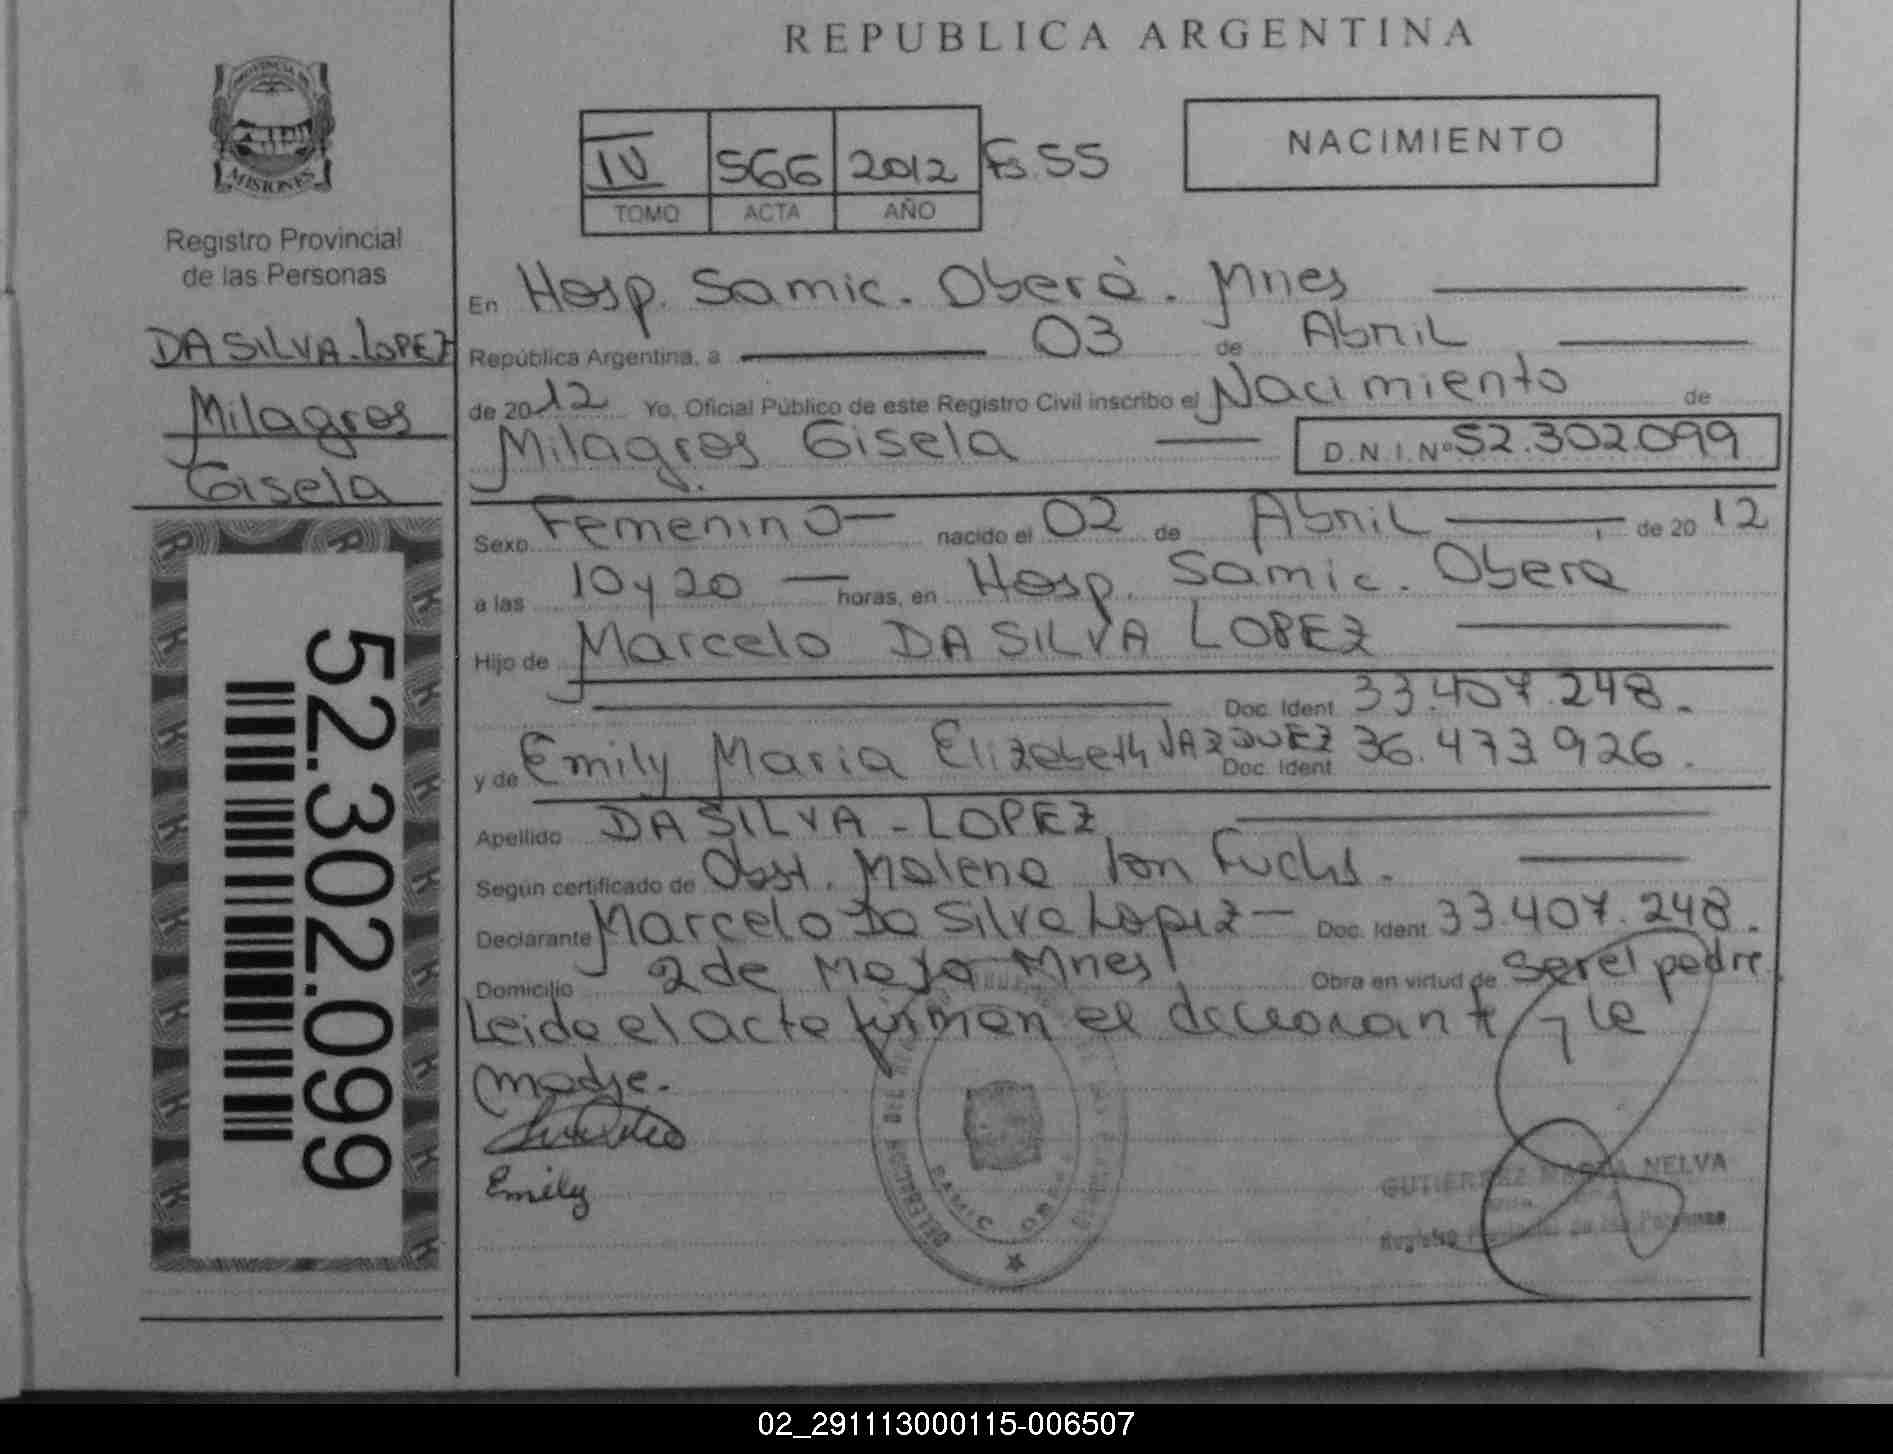 REPUBLICA ARGENTINA
PROVINCIA DE
MISIONES
Registro Provincial
de las Personas
DA SILVA-LOPEZ
Milagros
Gisela
52.302.099
IV 566 2012 Fs.55
TOMO ACTA AÑO
NACIMIENTO
En Hosp. Samic. Oberá. Mnes
República Argentina, a 03 de Abril
de 2012 Yo, Oficial Público de este Registro Civil inscribo el Nacimiento de
Milagros Gisela D.N.I.Nº 52.302.099
Sexo Femenino nacido el 02 de Abril de 2012
a las 10 y 20 horas, en Hosp. Samic. Obera
Hijo de Marcelo DA SILVA LOPEZ
Doc. Ident. 33.407.248.
y de Emily Maria Elizabeth VAZQUEZ Doc. Ident. 36.473.926.
Apellido DA SILVA-LOPEZ
Según certificado de Obst. Malena Von Fuchs.
Declarante Marcelo Da Silva Lopez Doc. Ident. 33.407.248.
Domicilio 2 de Mayo Mnes Obra en virtud de Ser el padre
Leida el acta firman el declarante y la
madre.
Emily
SAMIC OBERA
GUTIERREZ MARTA NELVA
Registro Provincial de las Personas
02_291113000115-006507